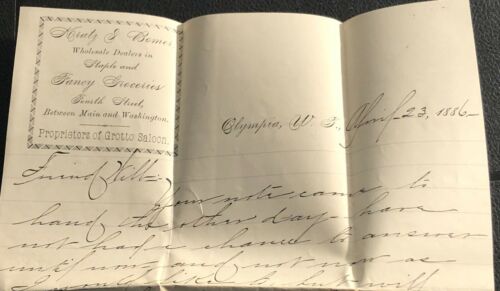 Kratz & Bomer
Wholesale Dealers in
Staple and
Fancy Groceries
Fourth Street,
Between Main and Washington.
Proprietors of Grotto Saloon.
Olympia, W. T., April 23, 1886
Friend Will:-
Your note came to
hand the other day have
not had a chance to answer
until now and not now as
I would like to but will